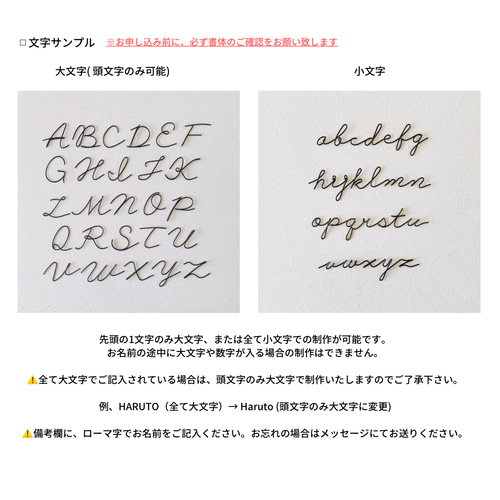 □ 文字サンプル ※お申し込み前に、必ず書体のご確認をお願い致します
大文字( 頭文字のみ可能)
小文字
A B C D E F
G H I J K
L M N O P
Q R S T U
V W X Y Z
a b c d e f g
h i j k l m n
o p q r s t u
v w x y z
先頭の1文字のみ大文字、または全て小文字での制作が可能です。
お名前の途中に大文字や数字が入る場合の制作はできません。
⚠️全て大文字でご記入されている場合は、頭文字のみ大文字で制作いたしますのでご了承下さい。
例、HARUTO（全て大文字）→ Haruto (頭文字のみ大文字に変更)
⚠️備考欄に、ローマ字でお名前をご記入ください。お忘れの場合はメッセージにてお送りください。